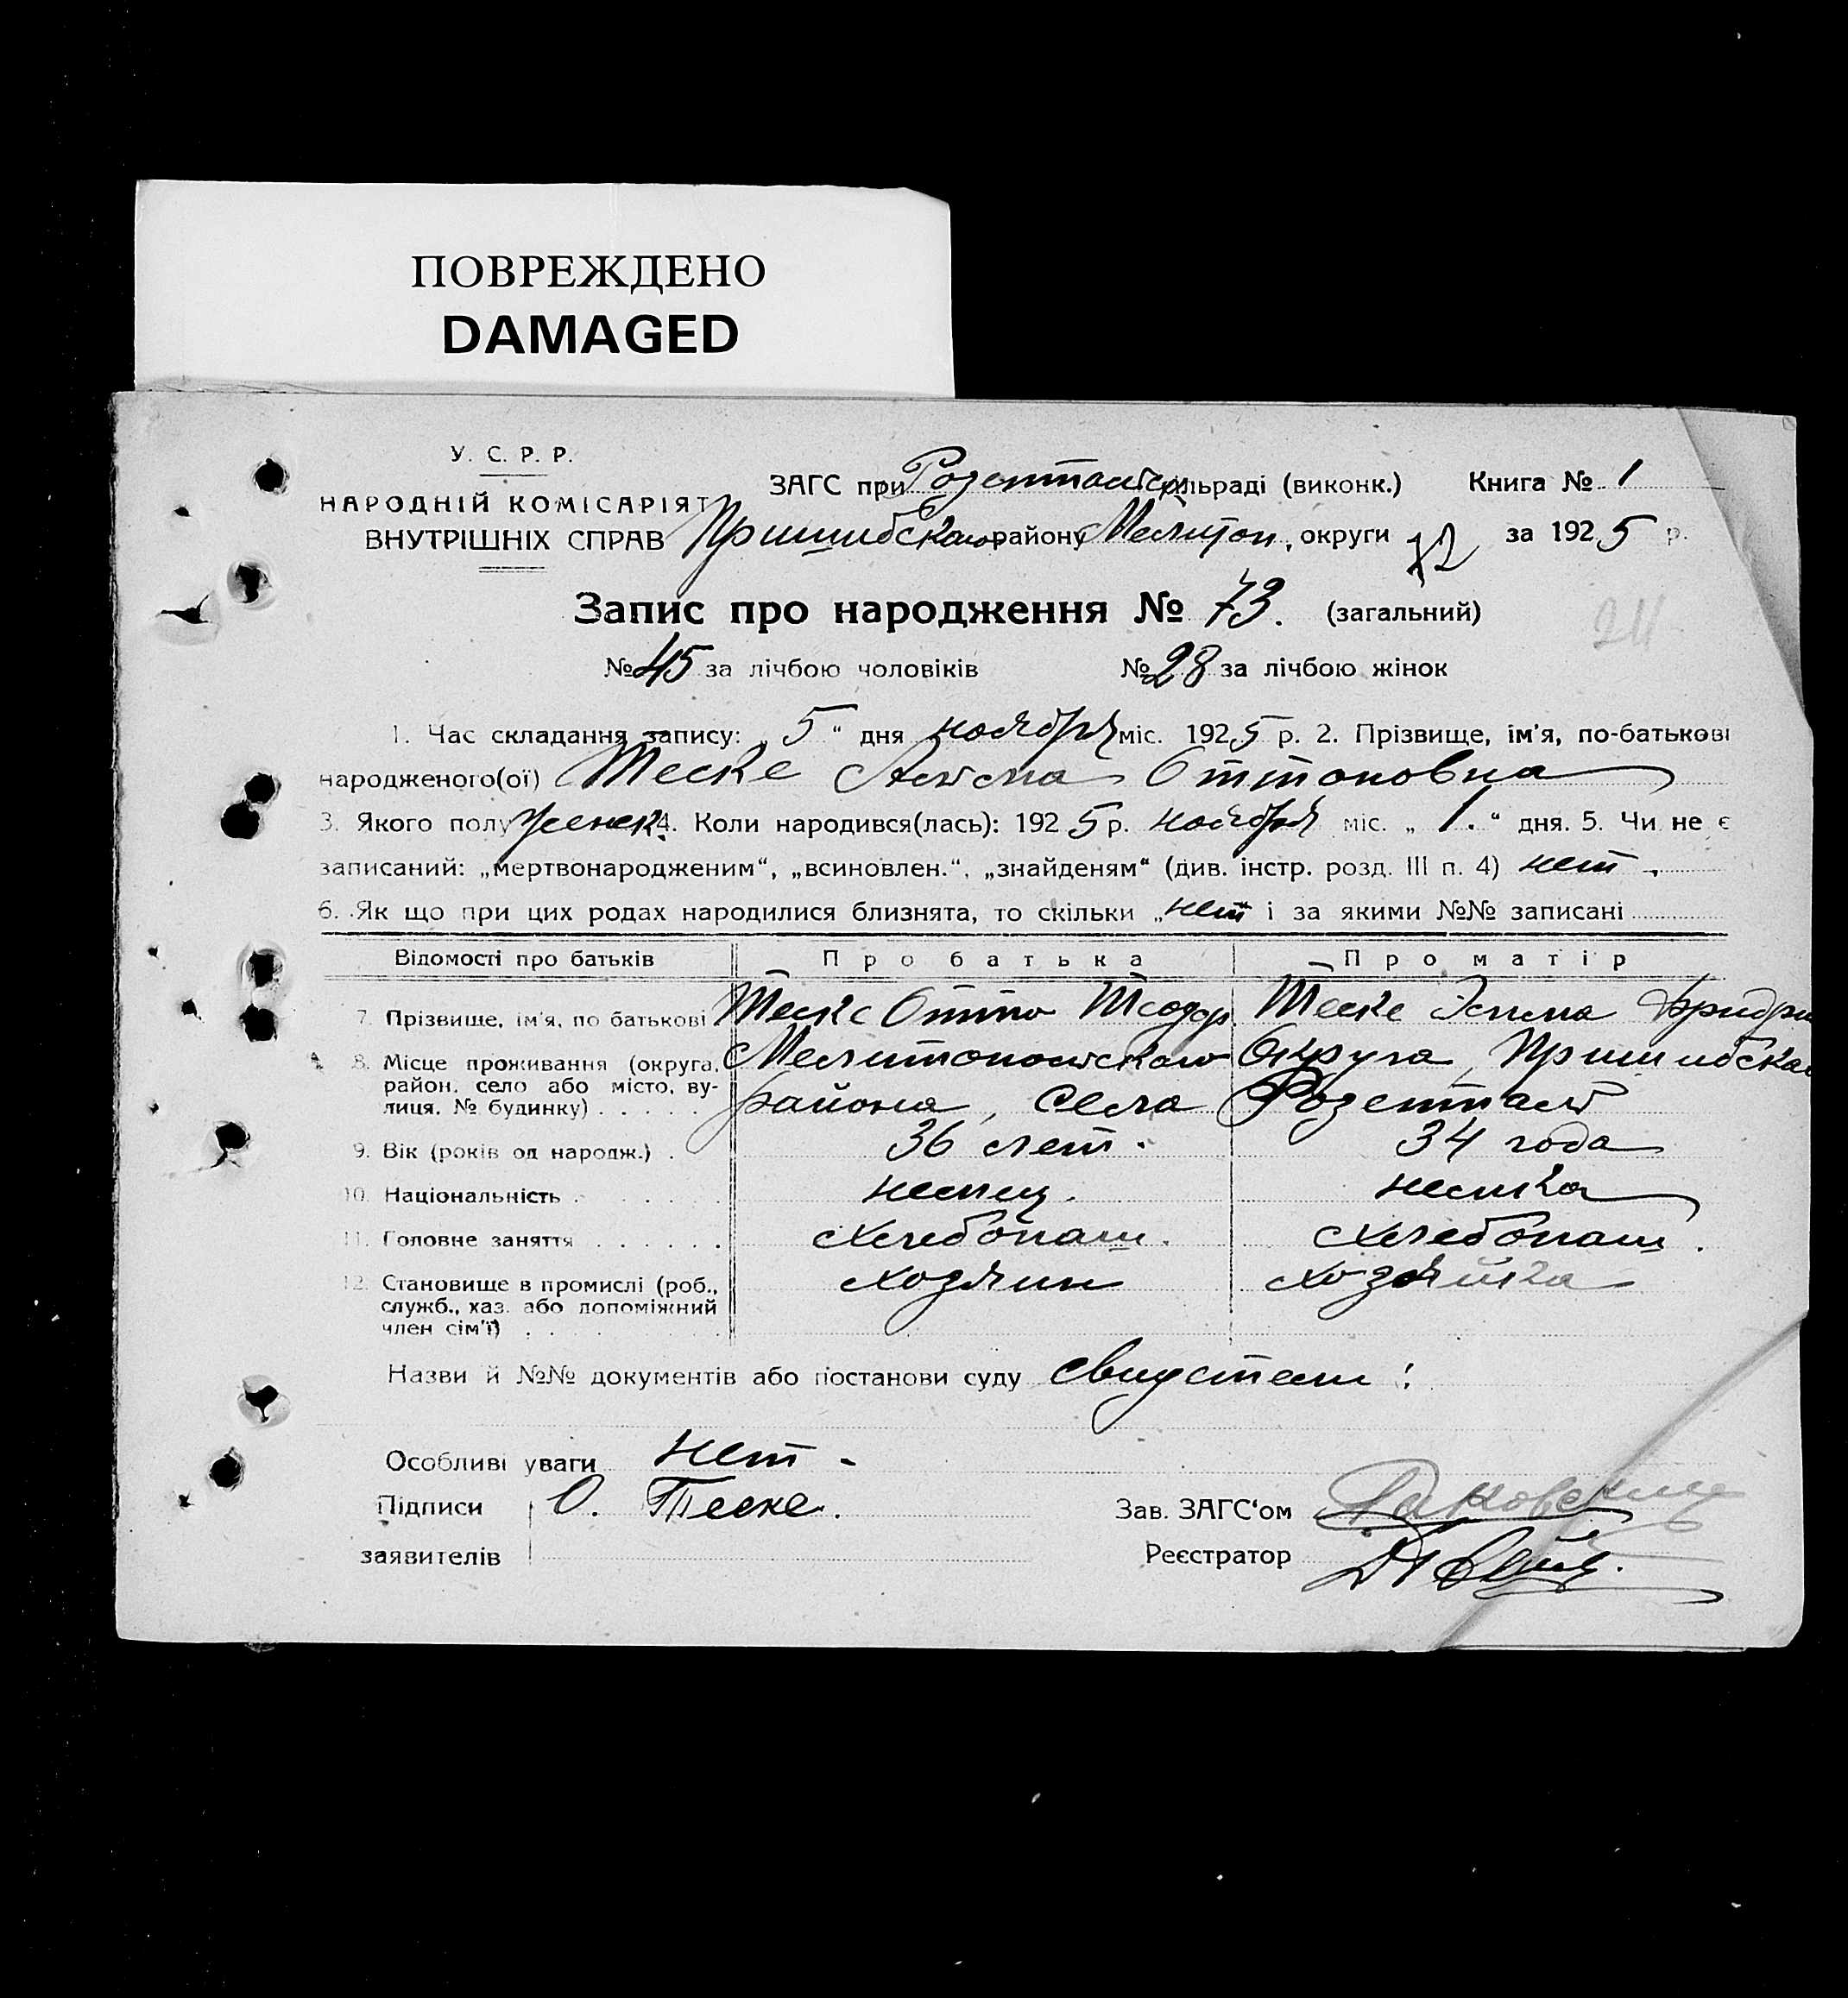 ПОВРЕЖДЕНО
DAMAGED
У. С. Р. Р.
НАРОДНІЙ КОМІСАРІЯТ
ВНУТРІШНІХ СПРАВ
ЗАГС при Розентальск сільраді (виконк.) Книга № 1
Пришибскаго району Мелитоп, округи за 1925 р.
72
Запис про народження № 73. (загальний)
24
№ 45 за лічбою чоловіків № 28 за лічбою жінок
1. Час складання запису: „ 5 " дня ноября міс. 1925 р. 2. Прізвище, ім'я, по-батькові
народженого(ої) Теске Альма Оттоновна
3. Якого полу женск. 4. Коли народився(лась): 1925 р. ноября міс. „ 1. " дня. 5. Чи не є
записаний: „мертвонародженим", „всиновлен.", „знайденям" (див. інстр. розд. III п. 4) нет.
6. Як що при цих родах народилися близнята, то скільки „нет і за якими №№ записані
Відомості про батьків Про батька Про матір
7. Прізвище, ім'я, по батькові Теске Отто Теодор Теске Эмма Фридри
8. Місце проживання (округа, Мелитопольскаго Округа, Пришибска
район, село або місто, ву-
лиця, № будинку) . . . . . района, села Розенталь
9. Вік (років од народж.) . 36 лет. 34 года
10. Національність . . . . . немец. немка
11. Головне заняття . . . . . . хлебопаш. хлебопаш.
12. Становище в промислі (роб., хозяин хозяйка
служб., хаз. або допоміжний
член сім'ї) . . . . . .
Назви й №№ документів або постанови суду свидетели:
Особливі уваги нет -
Підписи О. Теске. Зав. ЗАГС'ом Раковский
заявителів Реєстратор